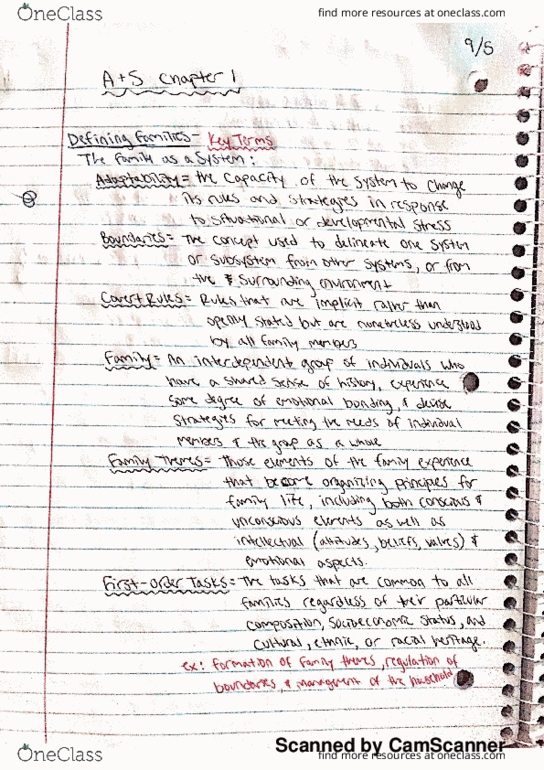 OneClass
find more resources at oneclass.com
9/5
A+S Chapter 1
Defining Families - Key Terms
The Family as a System:
Adaptability = the capacity of the system to change
its rules and strategies in response
to situational or developmental stress
Boundaries = The concept used to delineate one system
or subsystem from other systems, or from
the surrounding environment
Covert Rules = Rules that are implicit rather than
openly stated but are nonetheless understood
by all family members
Family = An interdependent group of individuals who
have a shared sense of history, experience
some degree of emotional bonding, & devise
strategies for meeting the needs of individual
members & the group as a whole
Family Themes = Those elements of the family experience
that become organizing principles for
family life, including both conscious &
unconscious elements as well as
intellectual (attitudes, beliefs, values) &
emotional aspects.
First-Order Tasks = The tasks that are common to all
families regardless of their particular
composition, socioeconomic status, and
cultural, ethnic, or racial heritage.
ex: formation of family themes, regulation of
boundaries, & management of the household
Scanned by CamScanner
OneClass
find more resources at oneclass.com